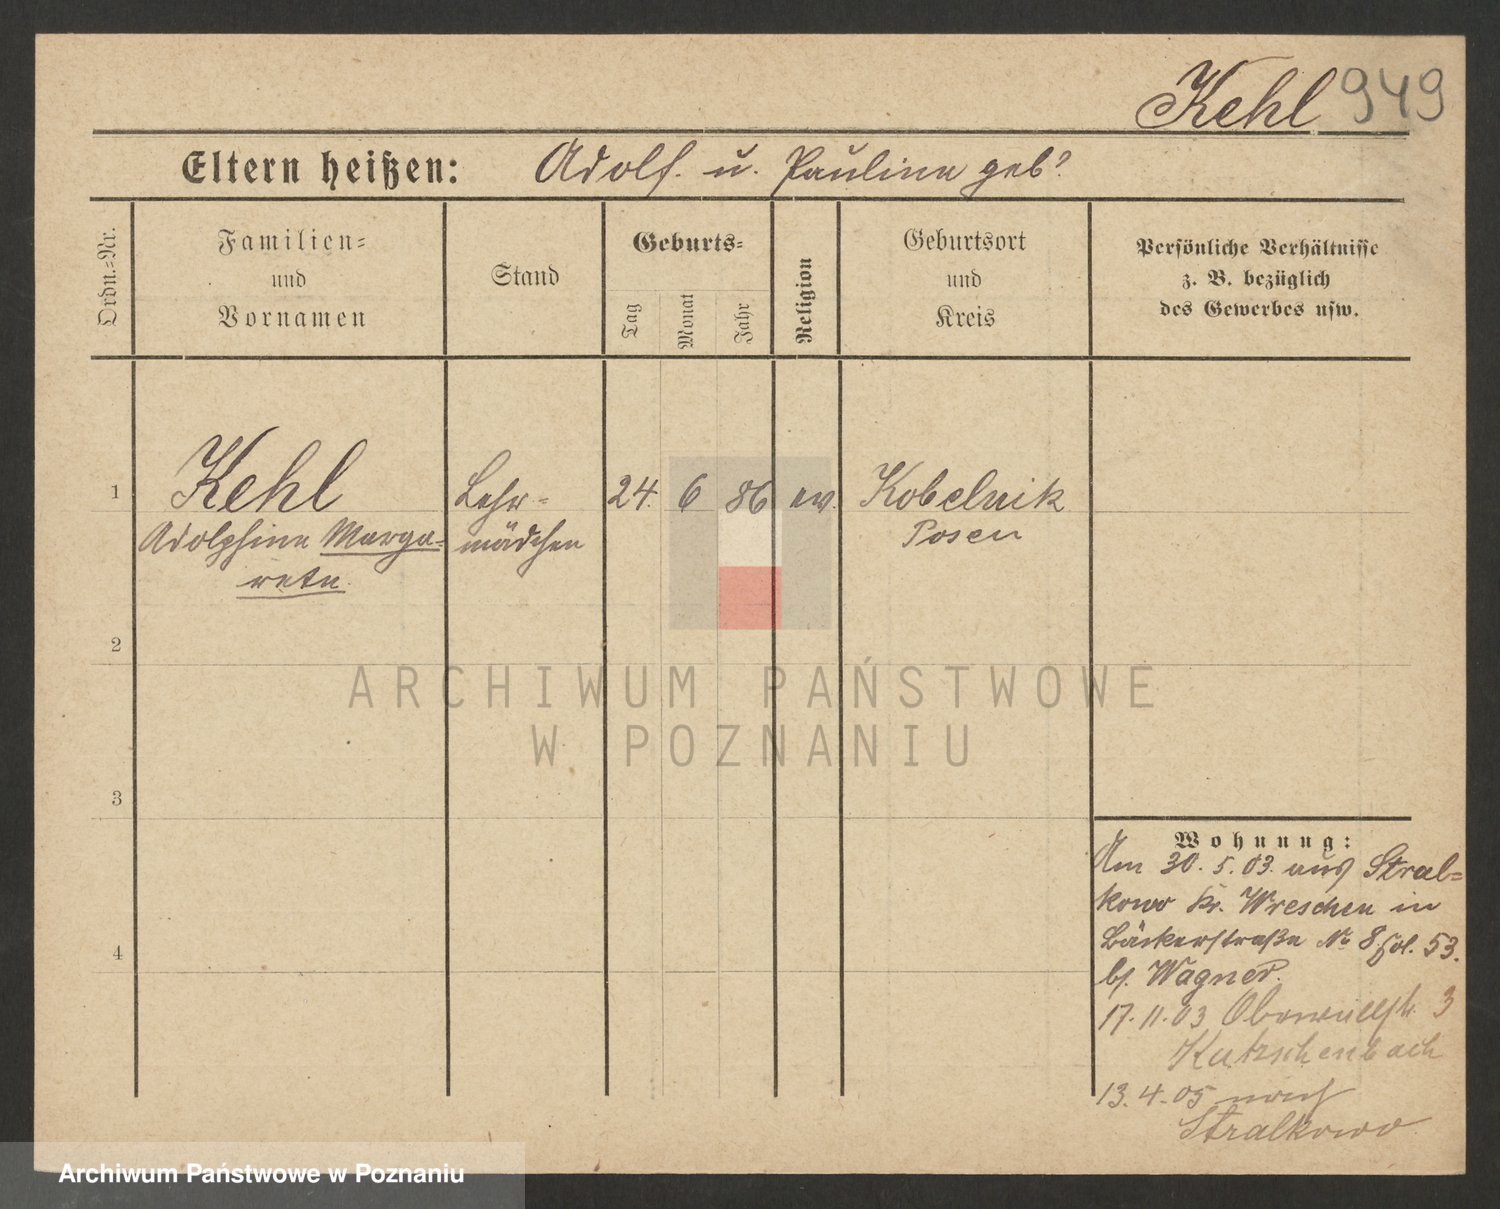 Kehl 949
Eltern heißen: Adolf. u. Pauline geb?
Ordn.=Nr.
Familien=
und
Vornamen
Stand
Geburts=
Tag
Monat
Jahr
Religion
Geburtsort
und
Kreis
Persönliche Verhältnisse
z. B. bezüglich
des Gewerbes usw.
1 Kehl Lehr= 24. 6 86 ev. Kobelnik
Adolphine Marga= mädchen Posen
rete
2
3
4
Wohnung:
Am 30.5.03. aus Stral=
kowo Kr. Wreschen in
Bäckerstraße No 8 fol. 53.
bf. Wagner.
17.11.03 Oberwallstr. 3
Kutzschenbach
13.4.05 nach
Stralkowo
ARCHIWUM PAŃSTWOWE
W POZNANIU
Archiwum Państwowe w Poznaniu